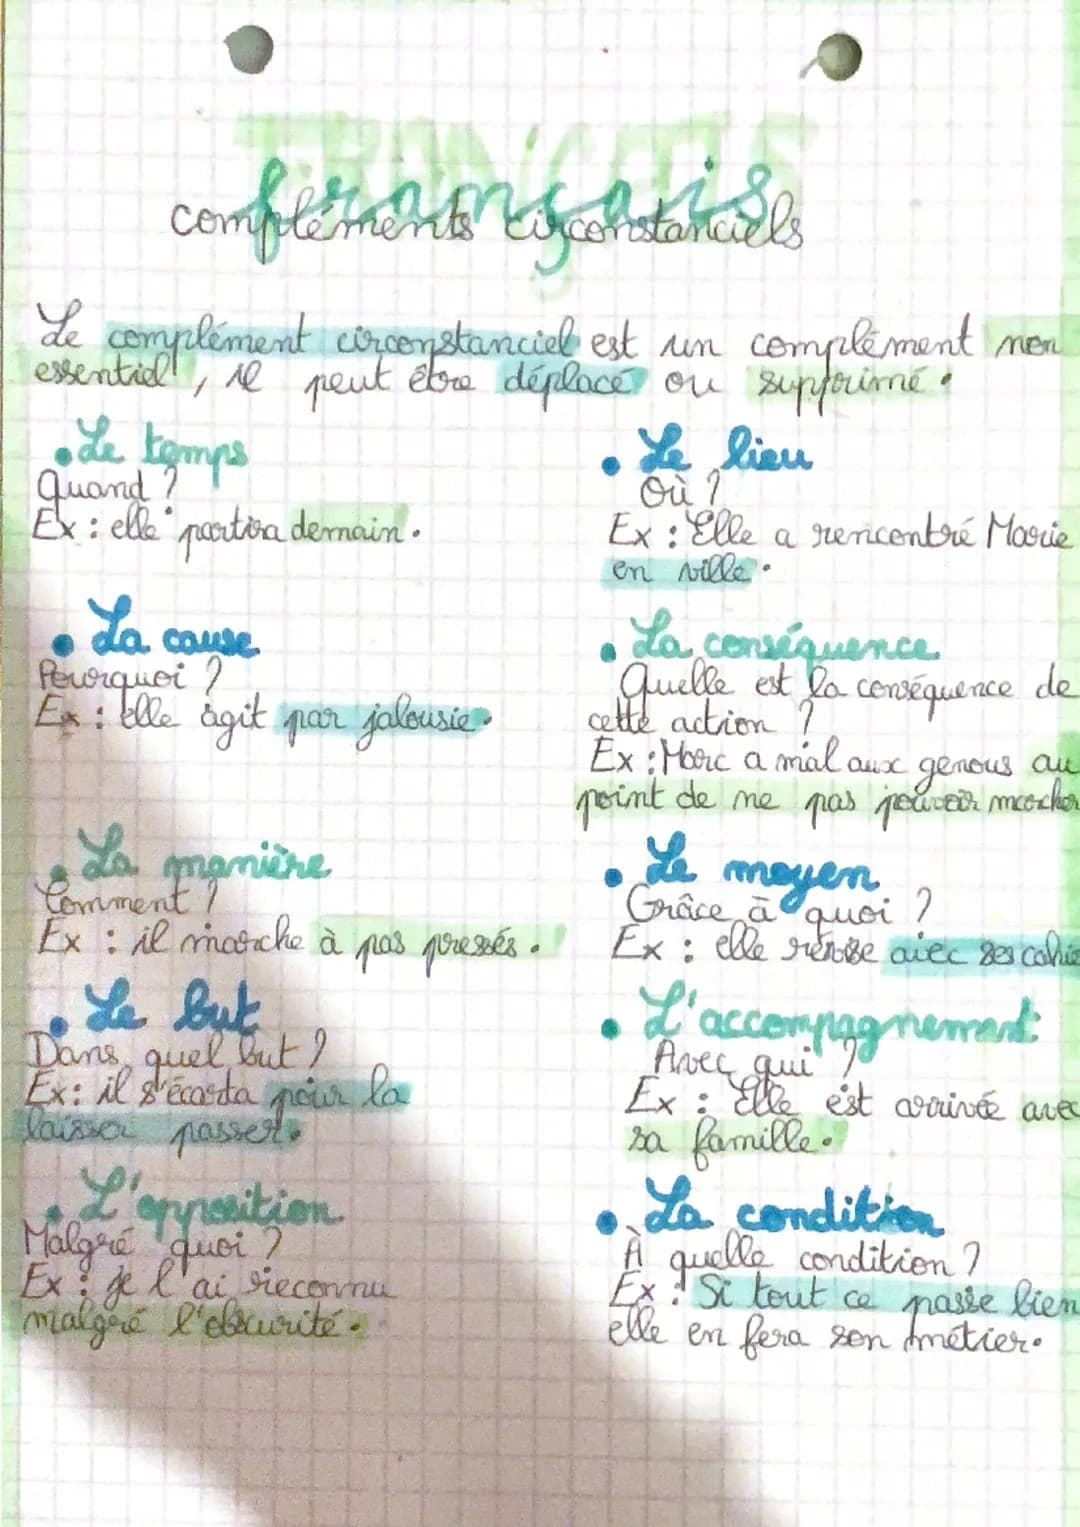 FRANÇAIS
français
compléments circonstanciels
Le complément circonstanciel est un complément non
essentiel, il peut être déplacé ou supprimé.
• Le temps
Quand ?
Ex : elle partira demain.
• Le lieu
Où ?
Ex : Elle a rencontré Marie
en ville.
• La cause
Pourquoi ?
Ex : elle agit par jalousie.
• La conséquence
Quelle est la conséquence de
cette action ?
Ex : Marc a mal aux genous au
point de ne pas pouvoir marcher
• La manière
Comment ?
Ex : il marche à pas pressés.
• Le moyen
Grâce à quoi ?
Ex : elle révise avec ses cahie
• Le but
Dans quel but ?
Ex : il s'écarta pour la
laisser passer.
• L'accompagnement :
Avec qui ?
Ex : Elle est arrivée avec
sa famille.
• L'opposition
Malgré quoi ?
Ex : je l'ai reconnu
malgré l'obscurité.
• La condition
À quelle condition ?
Ex : Si tout ce passe bien
elle en fera son métier.